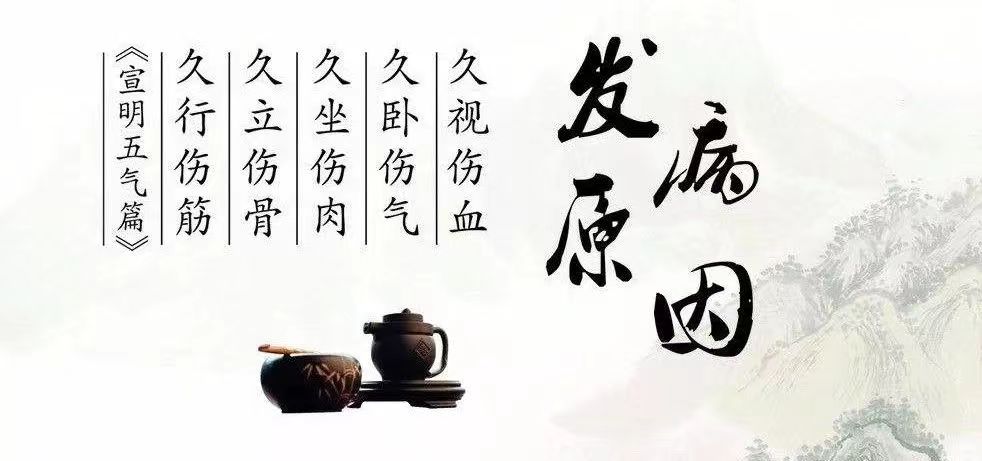 发病原因
久视伤血
久卧伤气
久坐伤肉
久立伤骨
久行伤筋
《宣明五气篇》